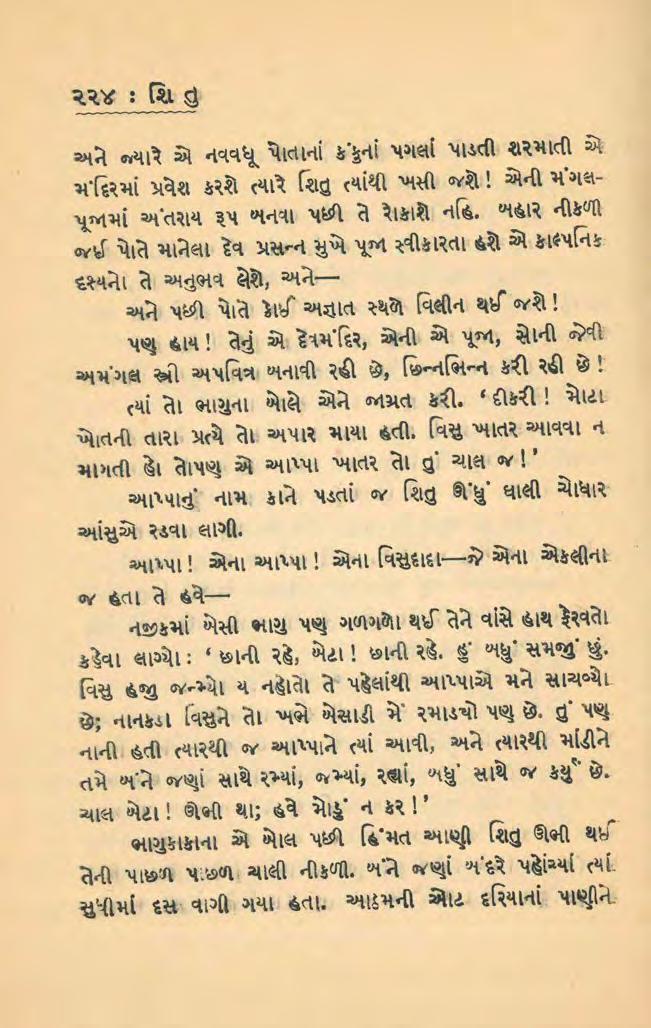 ૨૨૪ : શિ તુ
અને જ્યારે એ નવવધૂ પોતાનાં કંકુનાં પગલાં પાડતી શરમાતી એ
મંદિરમાં પ્રવેશ કરશે ત્યારે શિતુ ત્યાંથી ખસી જશે! એની મંગલ-
પૂજામાં અંતરાય રૂપ બનવા પછી તે રોકાશે નહિ. બહાર નીકળી
જઈ પોતે માનેલા દેવ પ્રસન્ન મુખે પૂજા સ્વીકારતા હશે એ કાલ્પનિક
દૃશ્યનો તે અનુભવ લેશે, અને—
અને પછી પોતે કોઈ અજ્ઞાત સ્થળે વિલીન થઈ જશે!
પણ હાય! તેનું એ દેવમંદિર, એની એ પૂજા, સોની જેવી
અમંગલ સ્ત્રી અપવિત્ર બનાવી રહી છે, છિન્નભિન્ન કરી રહી છે!
ત્યાં તો ભાગુના બોલે એને જાગ્રત કરી. ‘દીકરી! મોટા
ખોતની તારા પ્રત્યે તો અપાર માયા હતી. વિસુ ખાતર આવવા ન
માગતી હો તોપણ એ આપ્પા ખાતર તો તું ચાલ જ!’
આપ્પાનું નામ કાને પડતાં જ શિતુ ઊંધું ઘાલી ચોધાર
આંસુએ રડવા લાગી.
આપ્પા! એના આપ્પા! એના વિસુદાદા—જે એના એકલીના
જ હતા તે હવે—
નજીકમાં બેસી ભાગુ પણ ગળગળો થઈ તેને વાંસે હાથ ફેરવતો
કહેવા લાગ્યો: ‘છાની રહે, બેટા! છાની રહે. હું બધું સમજું છું.
વિસુ હજી જન્મ્યો ય નહોતો તે પહેલાંથી આપ્પાએ મને સાચવ્યો
છે; નાનકડા વિસુને તો ખભે બેસાડી મેં રમાડયો પણ છે. તું પણ
નાની હતી ત્યારથી જ આપ્પાને ત્યાં આવી, અને ત્યારથી માંડીને
તમે બંને જણાં સાથે રમ્યાં, જમ્યાં, રહ્યાં, બધું સાથે જ કર્યું છે.
ચાલ બેટા! ઊભી થા; હવે મોડું ન કર!’
ભાગુકાકાના એ બોલ પછી હિંમત આણી શિતુ ઊભી થઈ
તેની પાછળ પાછળ ચાલી નીકળી. બંને જણાં બંદરે પહોંચ્યાં ત્યાં
સુધીમાં દસ વાગી ગયા હતા. આઠમની ઓટ દરિયાનાં પાણીને